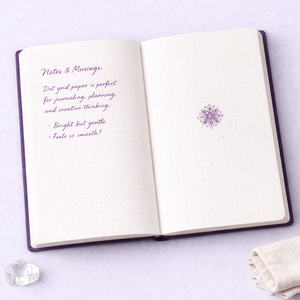 Notes & Musings.
Dot grid paper is perfect
for journaling, planning,
and creative thinking.
· Bright but gentle
· Feels so smooth!